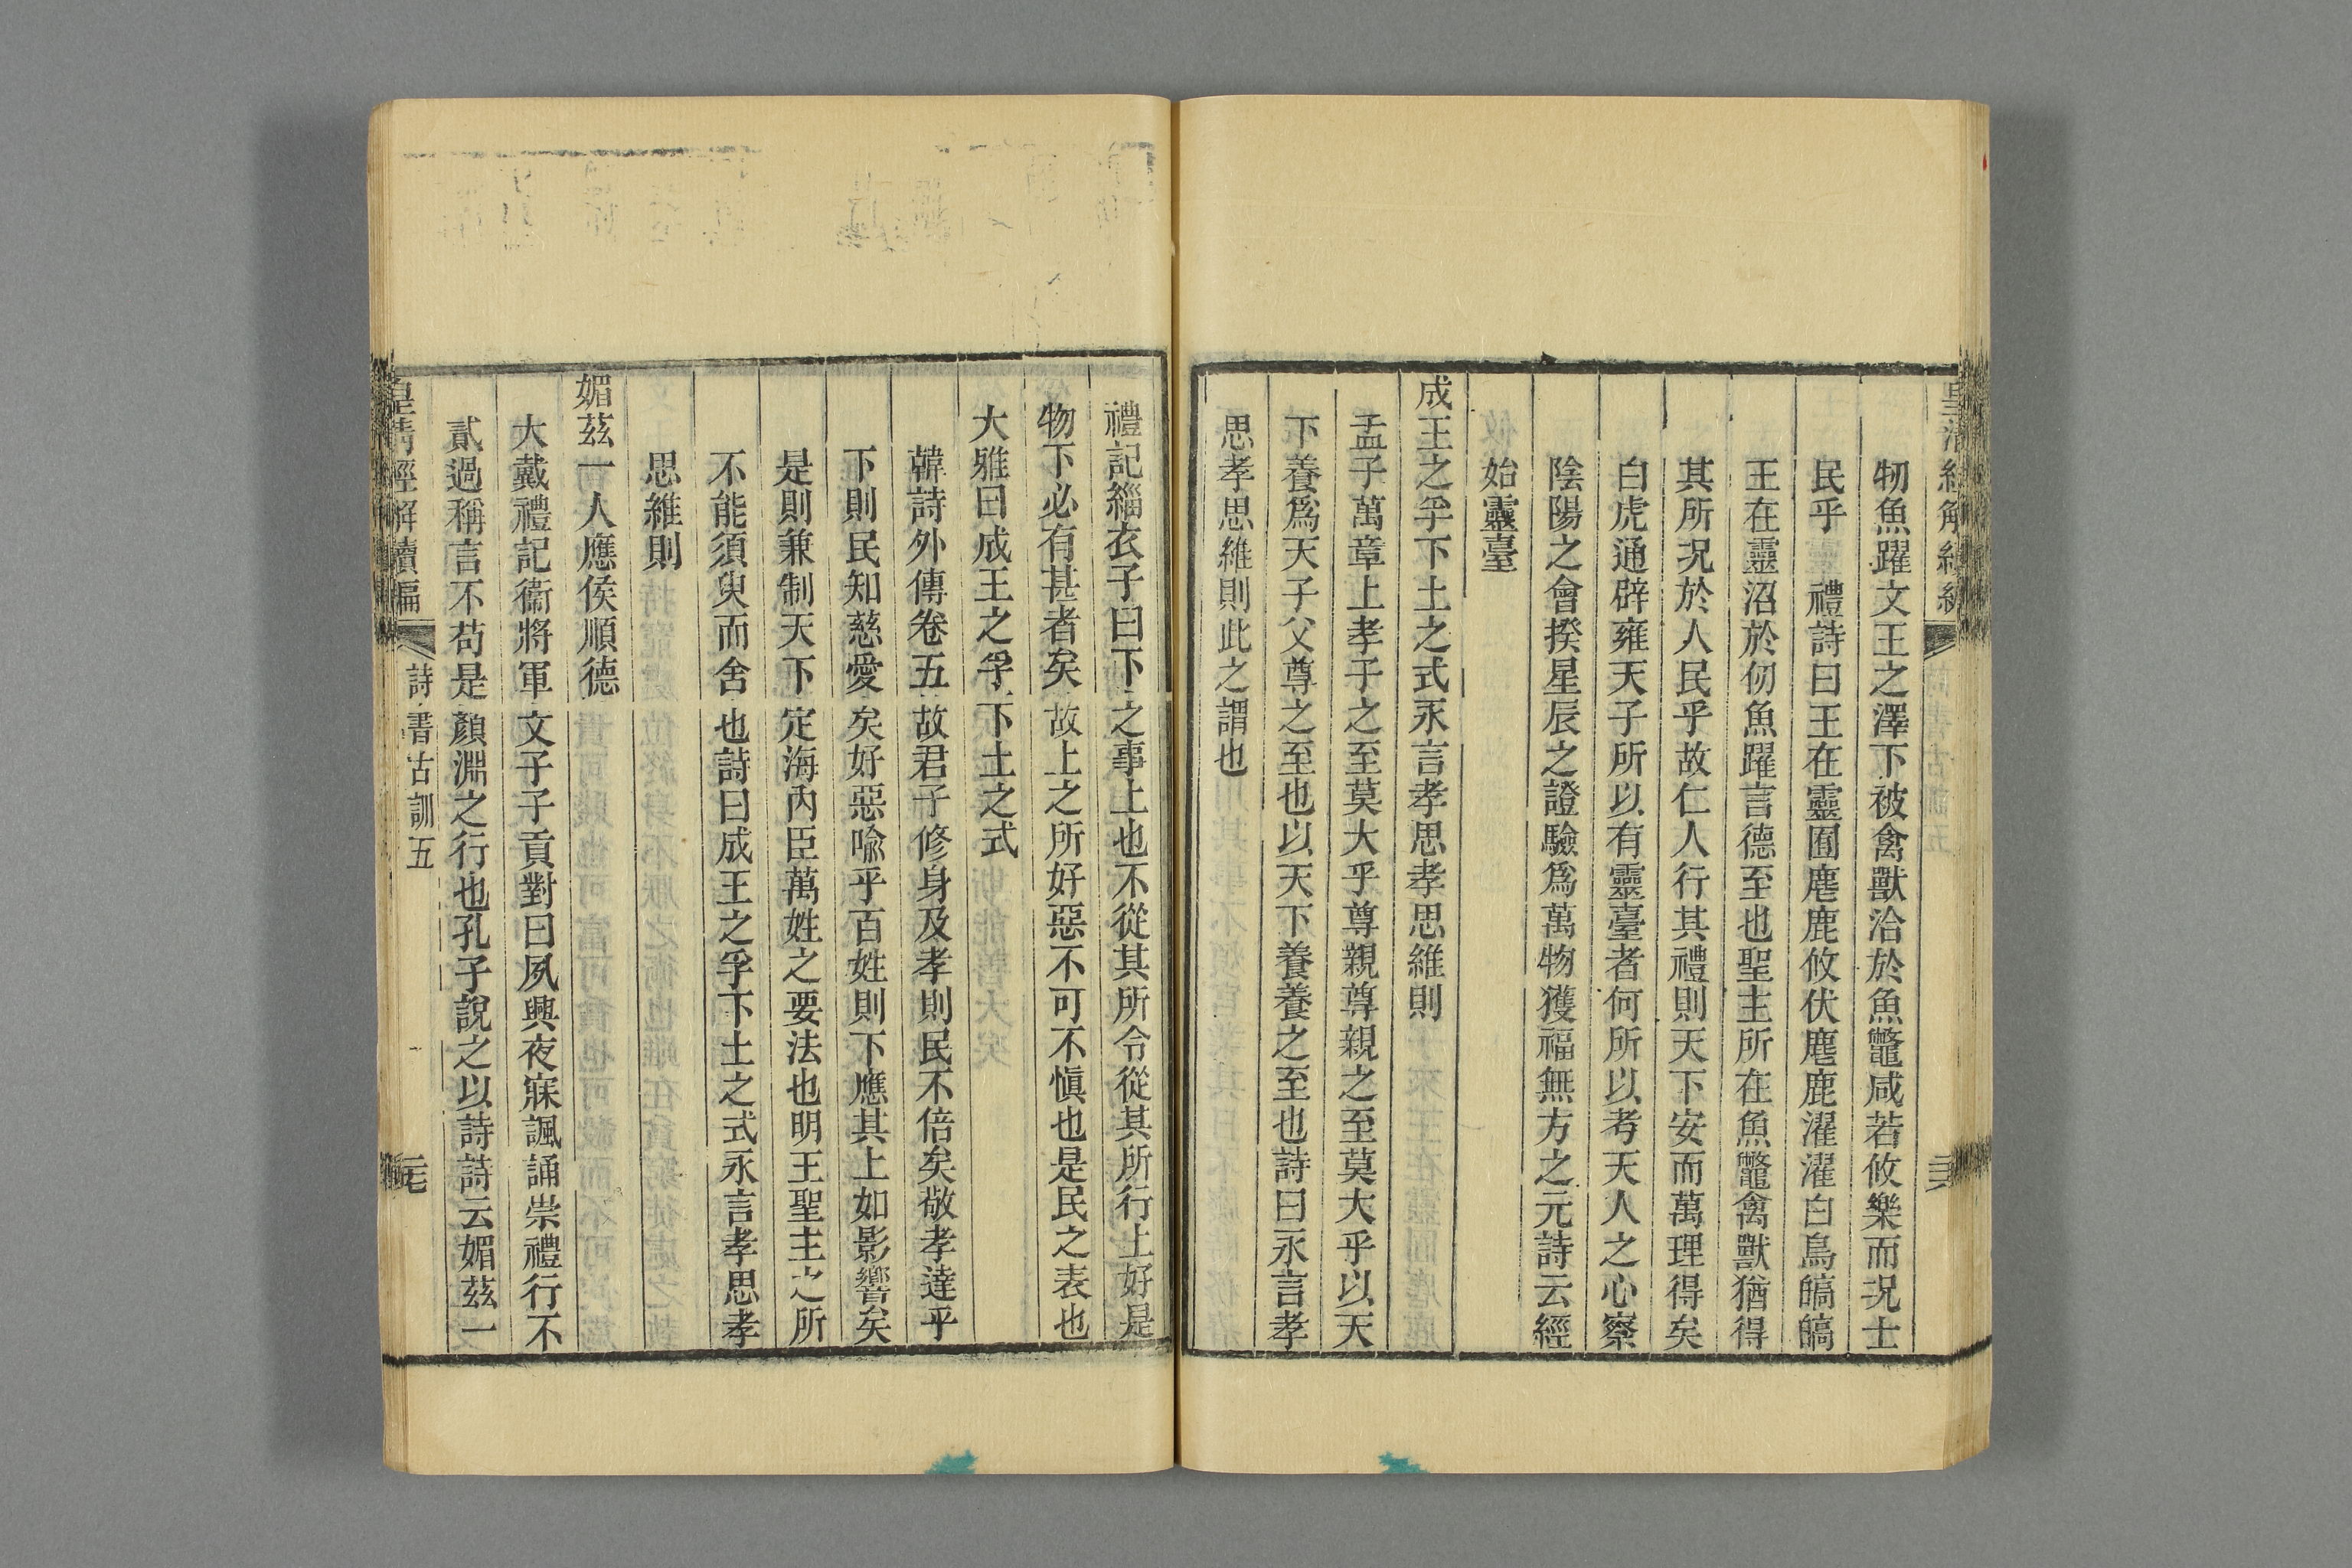 牣魚躍文王之澤下被禽獸洽於魚鼈咸若攸樂而况士
民乎　禮詩曰王在靈囿麀鹿攸伏麀鹿濯濯白鳥皜皜
王在靈沼於仞魚躍言德至也聖主所在魚鼈禽獸猶得
其所况於人民乎故仁人行其禮則天下安而萬理得矣
白虎通辟雍天子所以有靈臺者何所以考天人之心察
陰陽之會揆星辰之證驗爲萬物獲福無方之元詩云經
始靈臺
成王之孚下土之式永言孝思孝思維則
孟子萬章上孝子之至莫大乎尊親尊親之至莫大乎以天
下養爲天子父尊之至也以天下養養之至也詩曰永言孝
思孝思維則此之謂也
禮記緇衣子曰下之事上也不從其所令從其所行上好是
物下必有甚者矣故上之所好惡不可不愼也是民之表也
大雅曰成王之孚下土之式
韓詩外傳卷五故君子修身及孝則民不倍矣敬孝達乎
下則民知慈愛矣好惡喩乎百姓則下應其上如影響矣
是則兼制天下定海內臣萬姓之要法也明王聖主之所
不能須臾而舍也詩曰成王之孚下土之式永言孝思孝
思維則
媚茲一人應侯順德
大戴禮記衞將軍文子子貢對曰夙興夜寐諷誦崇禮行不
貳過稱言不苟是顏淵之行也孔子說之以詩詩云媚茲一
皇淸經解續編　詩書古訓五